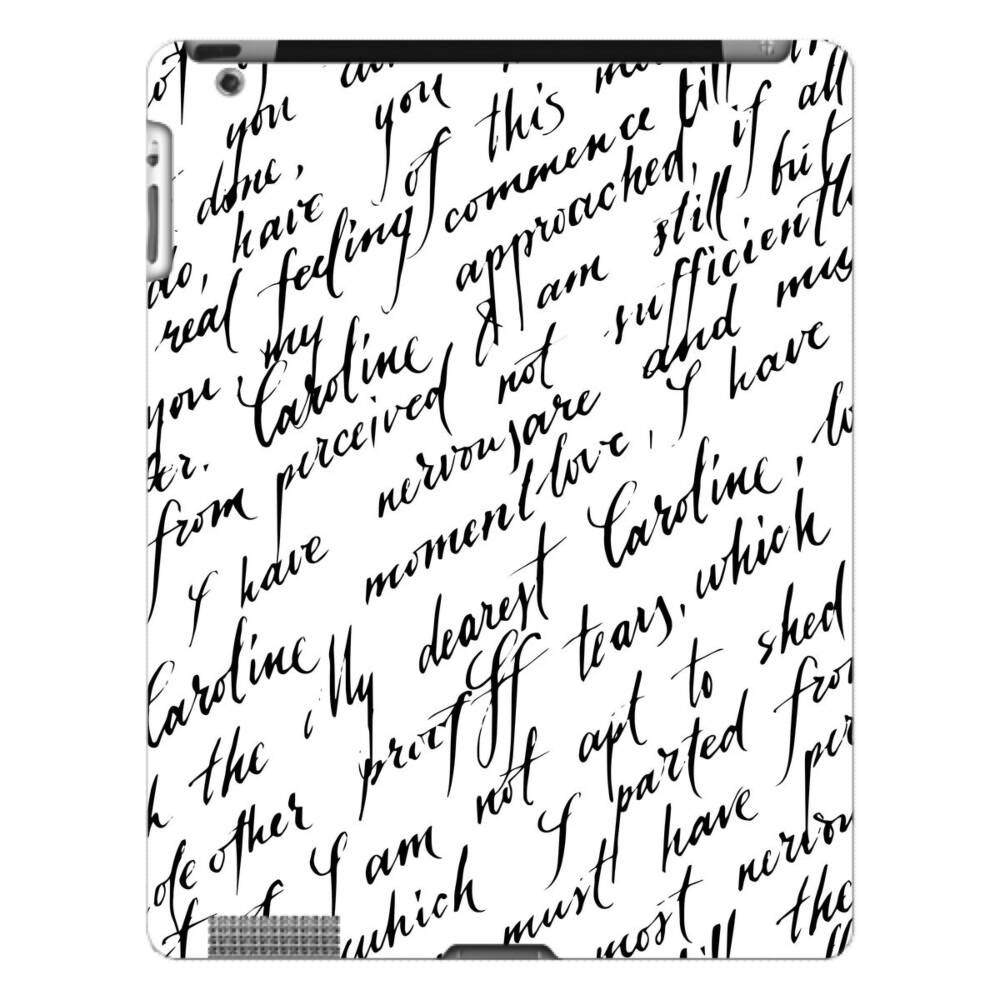 of you
done, you
do, have of this
real feeling commence till
you, my approached, if all
Caroline & am still but
from perceived not sufficientl
I have nervous are and mus
moment love, I have
Caroline My dearest Caroline, lo
h the proof tears, which
ole other not apt to shed
I am I parted from
which must have per
most nervou
till the